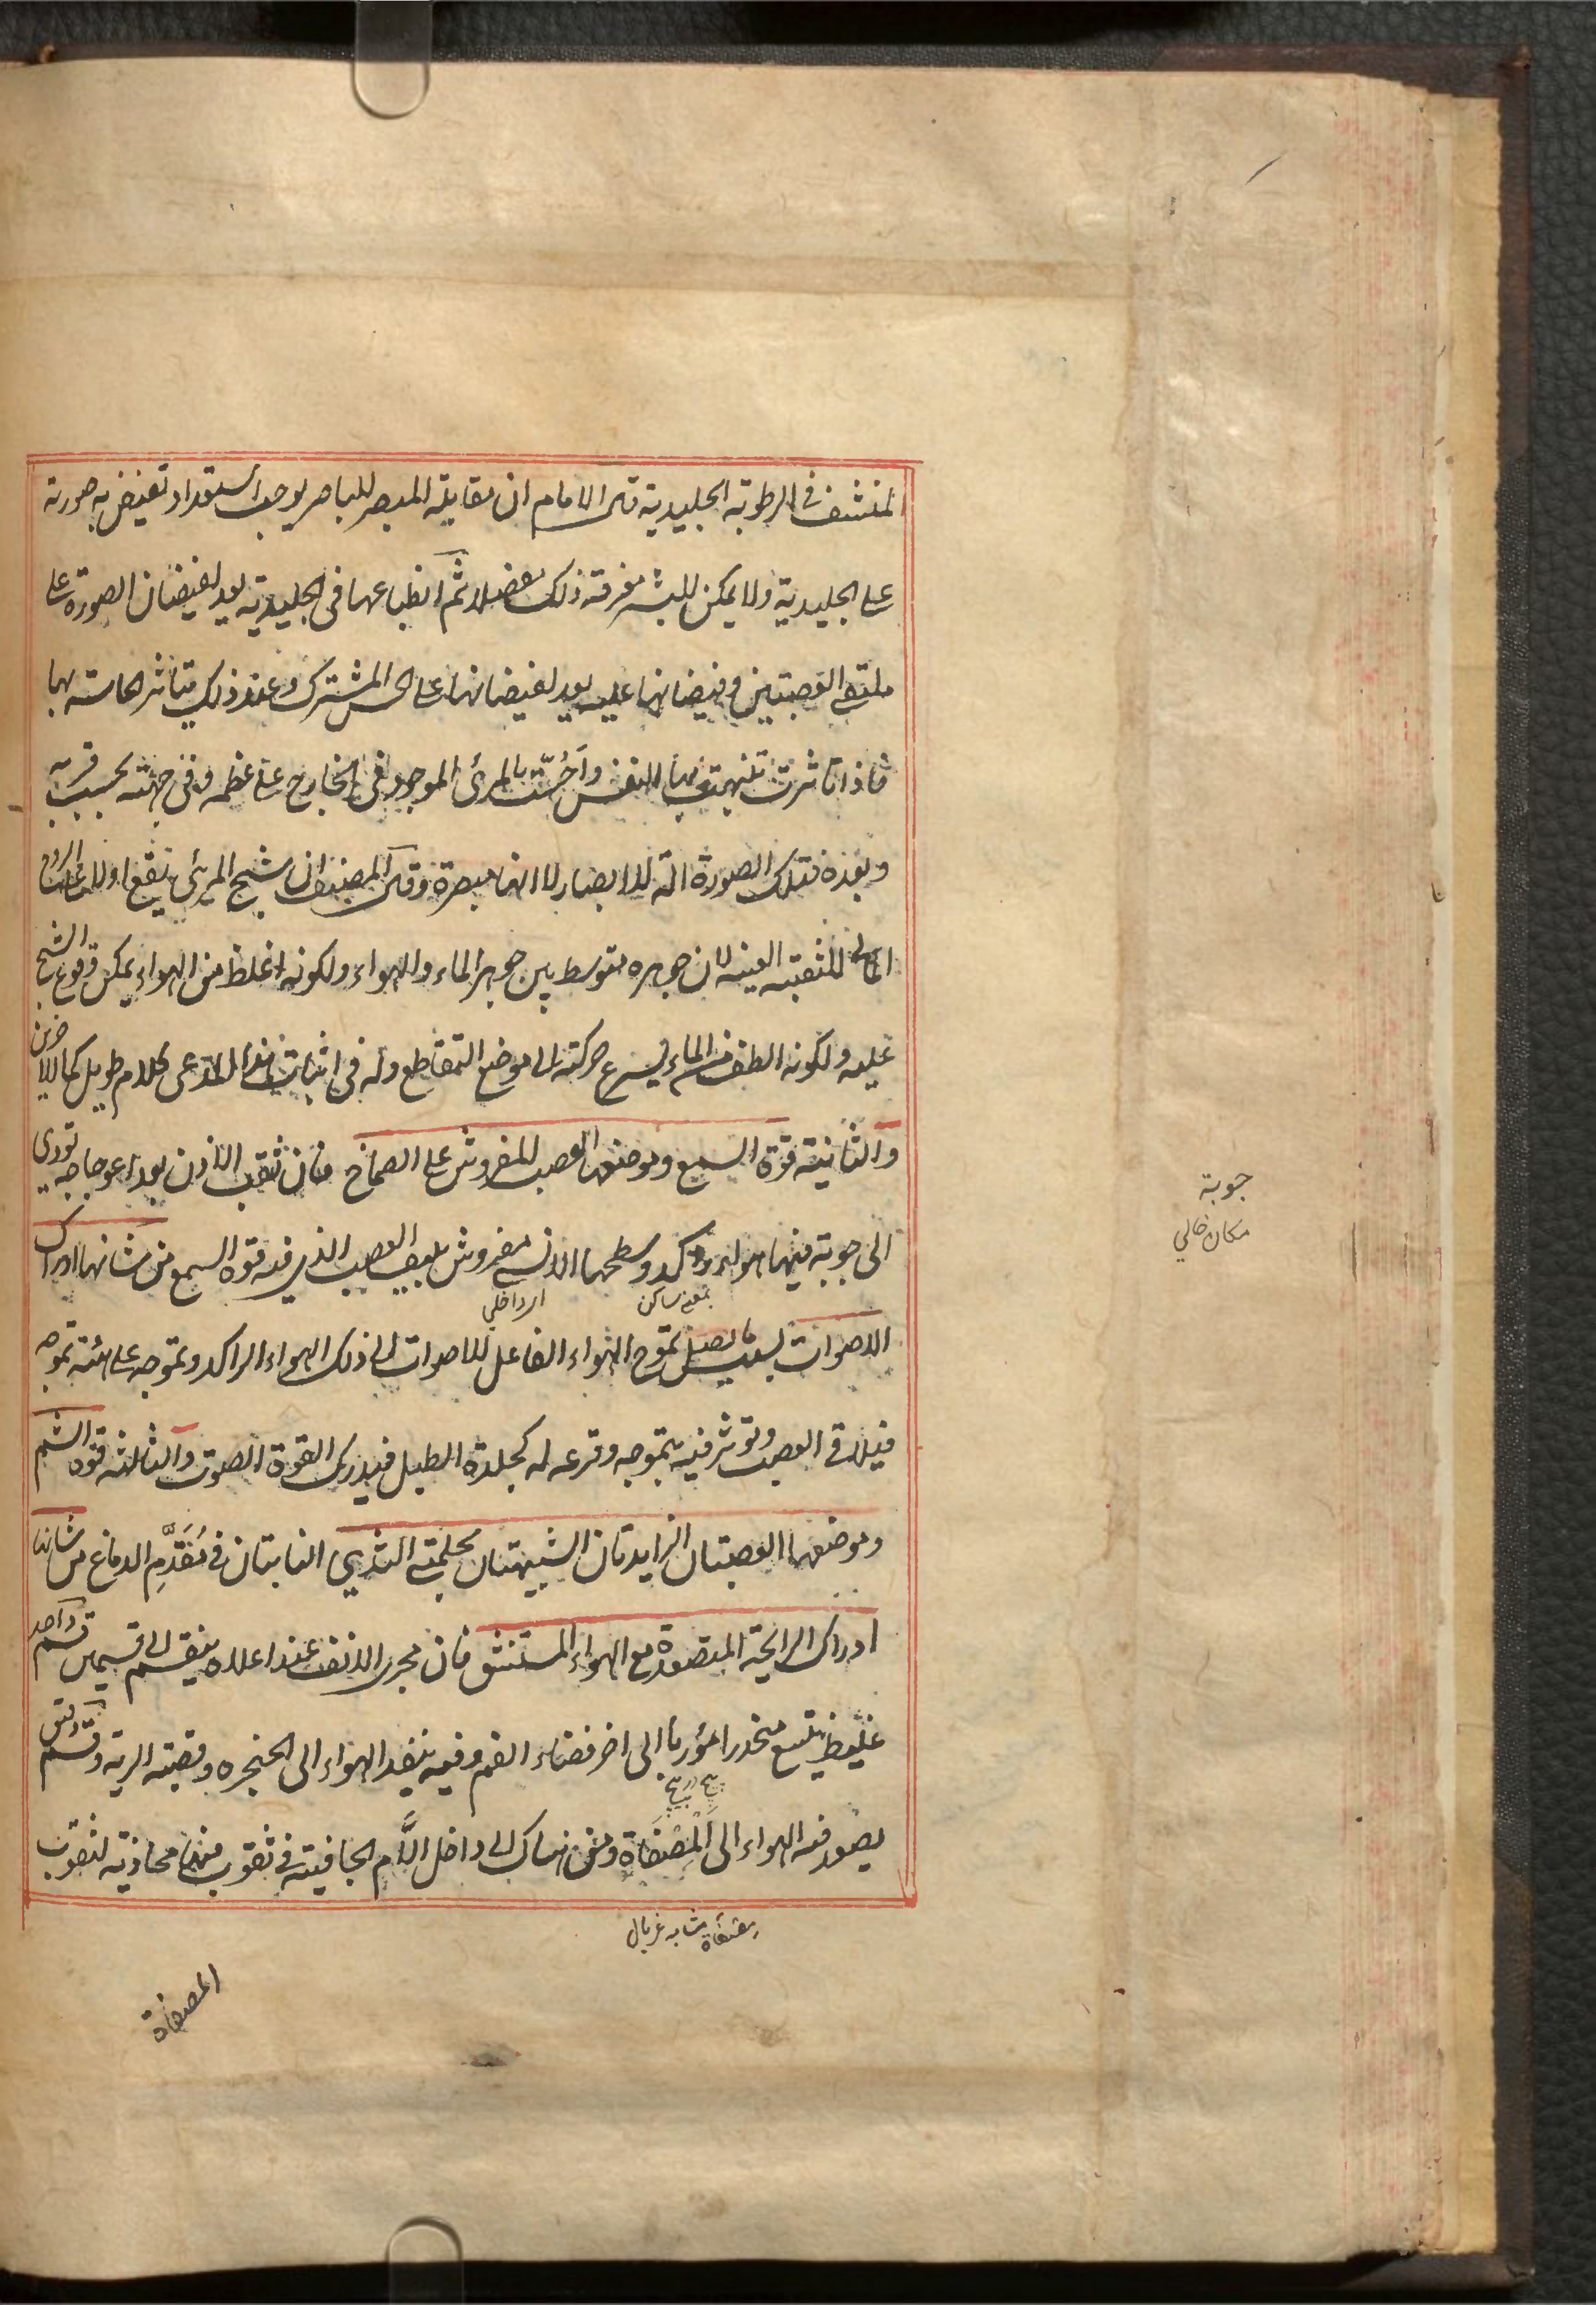 المنشف في الرطوبة الجليدية قال الامام ان مقابلة المبصر للباصر يوجب استعداد تفيض به صورته
على الجليدية ولا يمكن للبشر معرفة ذلك مفصلا ثم انطباعها في الجليدية يعد لفيضان الصورة على
ملتقى العصبتين وفيضانها عليه يعد لفيضانها على الحس المشترك وعند ذلك يتاثر الحاسة بها
فاذا تاثرت تنبهت بها النفس وأحسّت بالمرئ الموجود في الخارج على عظمه وفي جهته بحسب قربه
وبعده فتلك الصورة آلة للابصار لا انها مبصرة وقال المصنف ان شبح المرئي يقع اولا على الروح
المالى للثقبة العينية لان جوهره متوسط بين جوهر الماء والهواء ولكونه اغلظ من الهواء يمكن وقوع الشبح
عليه ولكونه الطف من الماء يسرع حركته الى موضع التقاطع وله في اثبات هذا المدعى كلام طويل كما للاخرين
والثانية قوة السمع وموضعها العصب المفروش على الصماخ فان ثقب الاذن بعد اعوجاجه تودي
الى جوبة فيها هواء راكد وسطحها الانسي مفروش بليف العصب الذي فيه قوة السمع من شانها ادراك
بمعنى ساكن
اى داخلي
الاصوات بسبب ما يصل تموج الهواء الفاعل للاصوات الى ذلك الهواء الراكد وتموجه على هيئة تموجه
فيلاقى العصب وتوثر فيه بتموجه وقرعه له كجلدة الطبل فيدرك القوة الصوت والثالثة قوة الشم
وموضعها العصبتان الزايدتان الشبيهتان بحلمتي الثدي النابتتان في مُقَدَّم الدماغ من شانها
ادراك الرايحة المتصعدة مع الهواء المستنشق فان مجرى الانف عند اعلاه ينقسم الى قسمين قسم واحد
غليظ يتسع منحدرا مؤربا الى اخر فضاء الفم وفيه ينفذ الهواء الى الحنجره وقصبة الرية وقسم دقيق
يصعد فيه الهواء الى المِصْفَاة ومن هناك الى داخل الأم الجافية في ثقوب فيها محاذية لثقوب
مصفاة مشابه غربال
المصفاة
جوبة
مكان خالي